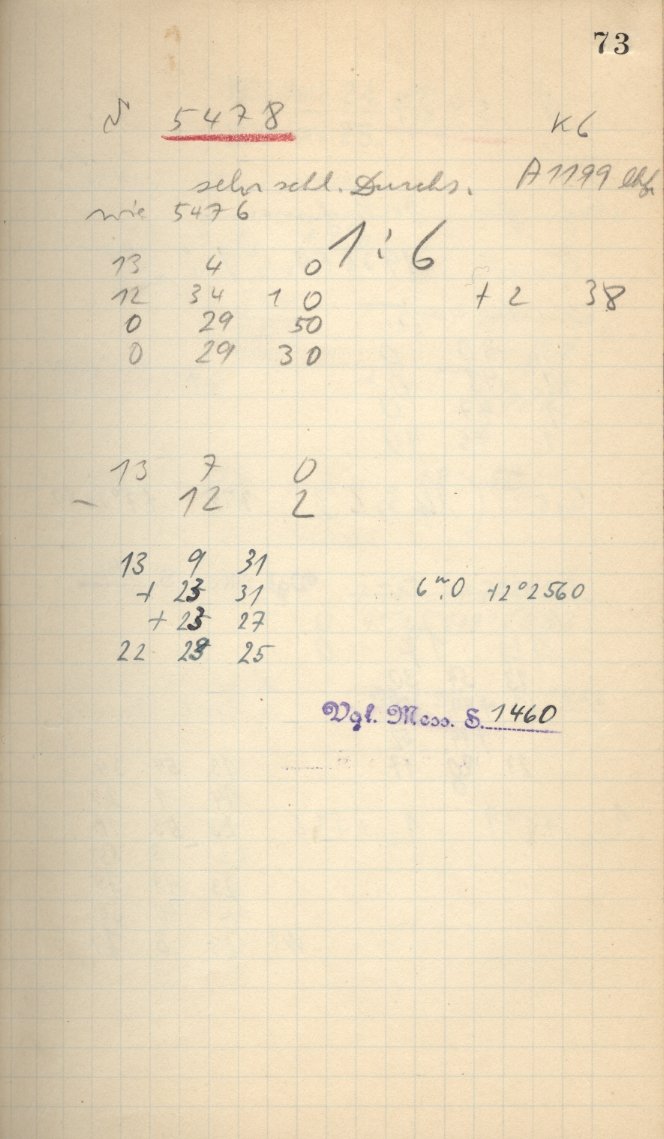 73
5478
K6
sehr schl. Durchs. A1199
wie 5476
1:6
13 4 0
12 34 10 +2 38
0 29 50
0 29 30
13 7 0
- 12 2
13 9 31
+ 23 31 6m.0 +2°2560
+ 23 27
22 28 25
Vgl. Mess. S. 1460